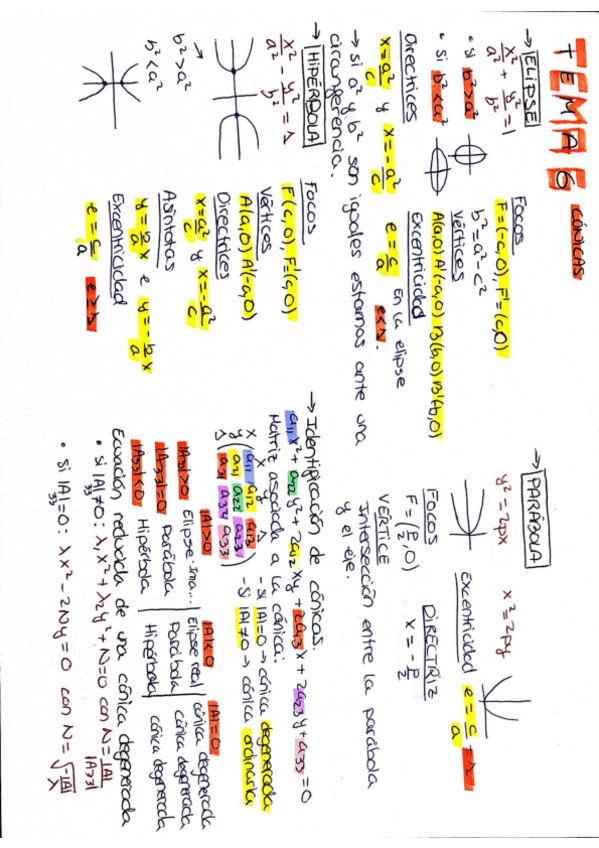 TEMA 6 CÓNICAS
→ ELIPSE
x²/a² + y²/b² = 1
• si b² > a²
• si b² < a²
Focos
F=(-c,0), F'=(c,0)
b² = a² - c²
Vértices
A(a,0) A'(-a,0) B(b,0) B'(-b,0)
Directrices
x = a²/c y x = -a²/c
Excentricidad
e = c/a En la elipse
e<1.
→ si a² y b² son iguales estamos ante una
circunferencia.
→ HIPÉRBOLA
x²/a² - y²/b² = 1
b² > a²
b² < a²
Focos
F(c,0), F'(c,0)
Vértices
A(a,0) A'(-a,0)
Directrices
x = a²/c y x = -a²/c
Asíntotas
y = b/a x e y = -b/a x
Excentricidad
e = c/a e>1
→ PARÁBOLA
y² = 2px x² = 2py
Focos
F = (p/2, 0)
DIRECTRIZ
x = -p/2
Excentricidad e = c/a = 1
VÉRTICE
Intersección entre la parábola
y el eje.
→ Identificación de cónicas.
a11x² + a22y² + 2a12xy + 2a13x + 2a23y + a33 = 0
Matriz asociada a la cónica:
x y 1
x a11 a12 a13
y a21 a22 a23
1 a31 a32 a33
- si |A|=0 → cónica degenerada
- si |A|≠0 → cónica ordinaria
|A|>0 |A|<0 |A|=0
|A33|>0 Elipse ima... Elipse real cónica degenerada
|A33|=0 Parábola Parábola cónica degenerada
|A33|<0 Hipérbola Hipérbola cónica degenerada
Ecuación reducida de una cónica degenerada
• si |A33|≠0: λ1x² + λ2y² + N=0 con N = |A|/|A33|
• si |A33|=0: λx² - 2Ny=0 con N = √(-|A|/λ)